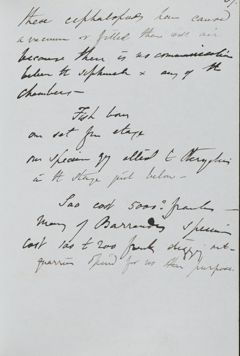 these cephalopods have caused
a vacuum or filled them with air
because there is no communication
between the siphuncle & any of the
chambers —
Fish bone
one set from stage
one specimen
in the stage just below —
Sao cost 5000? francs —
Many of Barrande's specimens
cost 100 to 200 francs digging
quarries opened for no other purpose